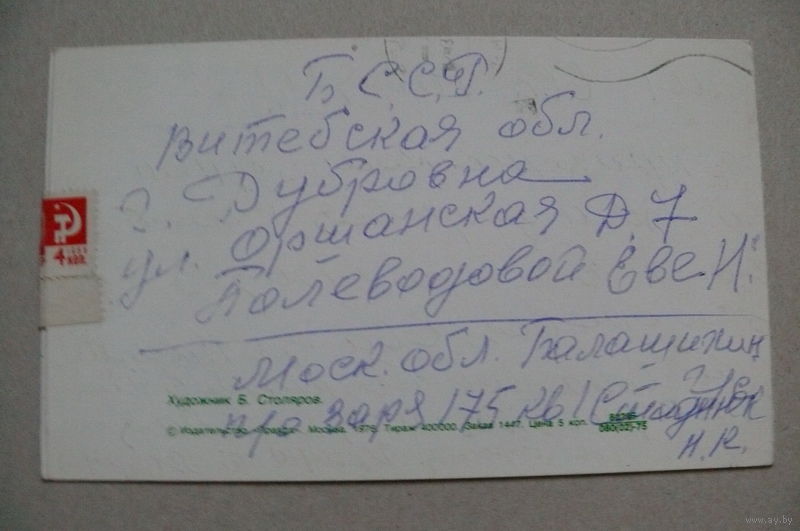 Б.С.С.Р.
Витебская обл.
г. Дубровна
ул. Оршанская Д. 7
Полеводовой Еве Н.
4 коп
Моск. обл. Балашихин
заря 175 кв 1
Н.К.
Художник Б. Столяров.
© Издательство «Правда». Москва. 1975. Тираж 400000. Заказ 1447. Цена 5 коп.
080(02)-75
www.ay.by